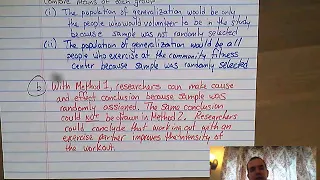 Compare means of each group
(i) The population of generalization would be only
the people who would volunteer to be in the study
because sample was not randomly selected
(ii) The population of generalization would be all
people who exercise at the community fitness
center because sample was randomly selected
(b) With Method 1, researchers can make cause
and effect conclusion because sample was
randomly assigned. The same conclusion
could NOT be drawn in Method 2. Researchers
could conclude that working out with an
exercise partner improves the intensity of
the workout.